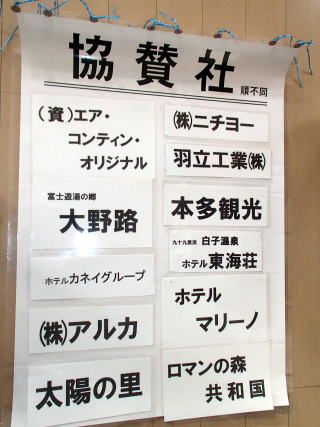 協賛社
順不同
（資）エア・
コンティン・
オリジナル
富士遊湯の郷
大野路
ホテルカネイグループ
㈱アルカ
太陽の里
㈱ニチヨー
羽立工業㈱
本多観光
九十九里浜 白子温泉
ホテル東海荘
ホテル
マリーノ
ロマンの森
共和国